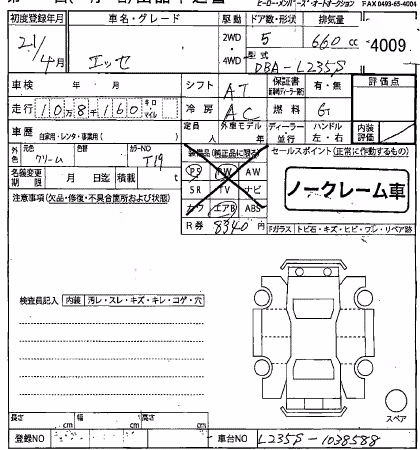 ビーロー・メンバーズ・オートオークション FAX 0493-65-4004
初度登録年月 車名・グレード 駆動 ドア数・形状 排気量
21/4月 エッセ 2WD 4WD 5 660cc 4009
型式
DBA-L235S
車検 年 月 シフト AT 保証書 有・無 評価点
走行 108千160 キロ マイル 冷房 AC 燃料 G
車歴 自家用・レンタ・事業用( ) 定員 人 外車モデル 年 ディーラー 並行 ハンドル 左・右 内装評価
外色 元色 クリーム 色替 カラーNO T19
名義変更期限 月 日迄 積載 t
装備品(純正品に限る) セールスポイント(正常に作動するもの)
PS PW AW
SR TV ナビ
カワ エアB ABS
ノークレーム車
R券 8340円
注意事項(欠品・修復・不具合箇所および状態)
Fガラス トビ石・キズ・ヒビ・ワレ・リペア跡
検査員記入 内装 汚レ・スレ・キズ・キレ・コゲ・穴
スペア
長さ cm 幅 cm 高さ cm
登録NO 車台NO L235S-1038588